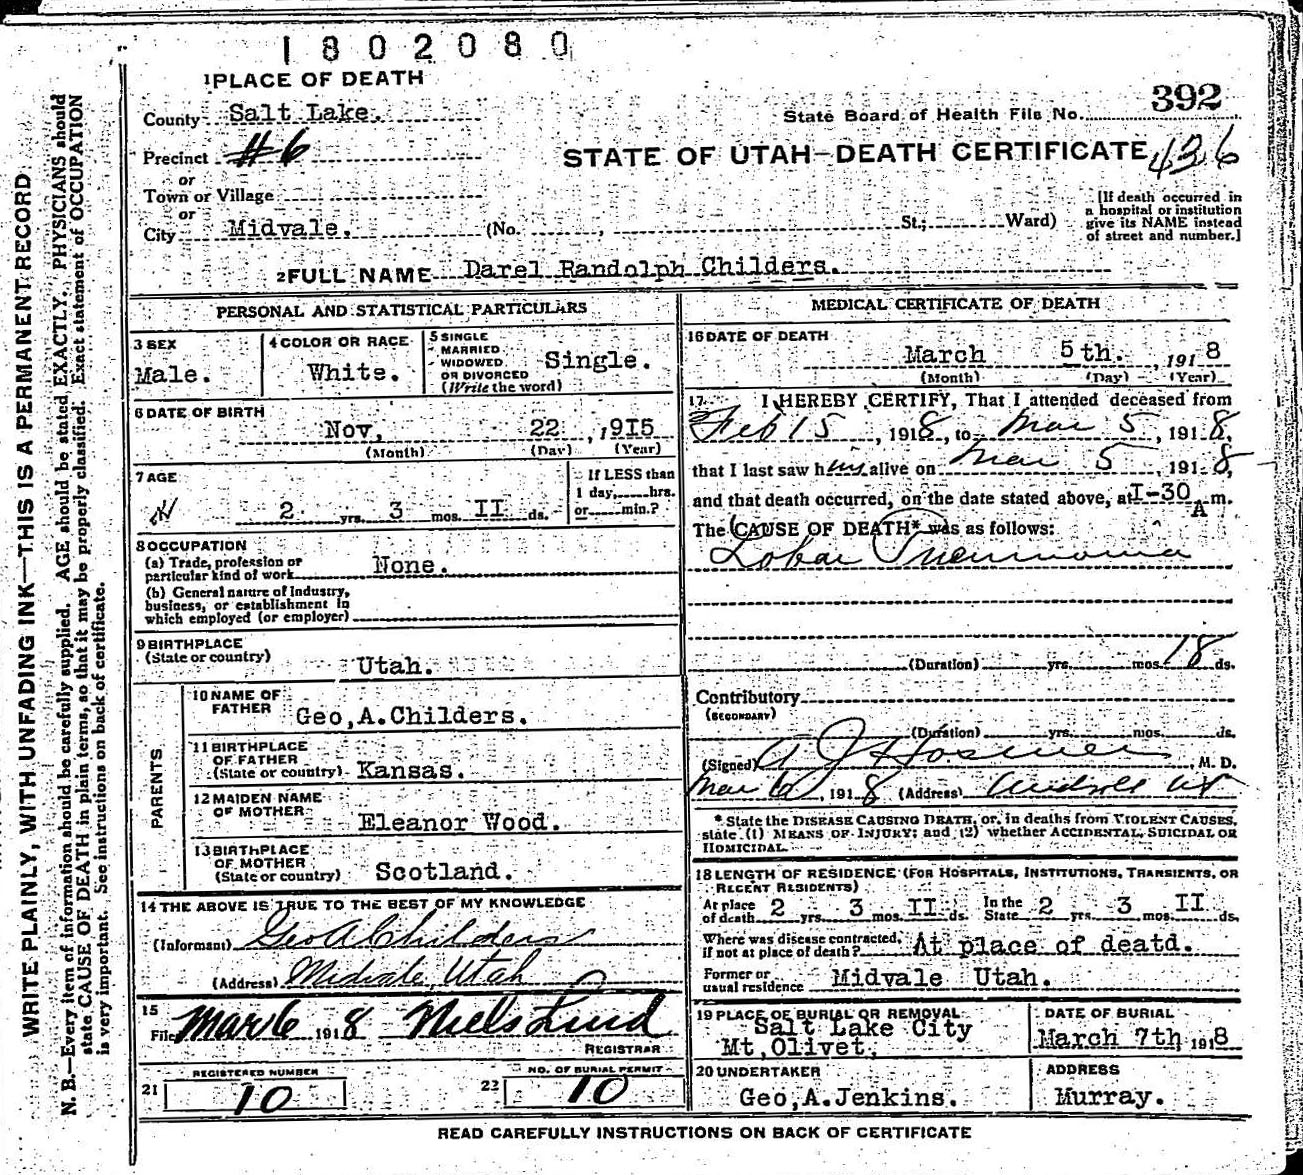 1802080
1 PLACE OF DEATH
County Salt Lake.
State Board of Health File No. 392
Precinct #6
STATE OF UTAH—DEATH CERTIFICATE 436
or
Town or Village
or
City Midvale. (No. , St.; Ward)
[If death occurred in
a hospital or institution
give its NAME instead
of street and number.]
2 FULL NAME Darel Randolph Childers.
PERSONAL AND STATISTICAL PARTICULARS
3 SEX
Male.
4 COLOR OR RACE
White.
5 SINGLE
MARRIED
WIDOWED
OR DIVORCED
(Write the word)
Single.
6 DATE OF BIRTH
Nov, 22, 1915
(Month) (Day) (Year)
7 AGE
2 yrs. 3 mos. II ds.
If LESS than
1 day, hrs.
or min.?
8 OCCUPATION
(a) Trade, profession or
particular kind of work None.
(b) General nature of Industry,
business, or establishment in
which employed (or employer)
9 BIRTHPLACE
(State or country) Utah.
PARENTS
10 NAME OF
FATHER Geo,A.Childers.
11 BIRTHPLACE
OF FATHER
(State or country) Kansas.
12 MAIDEN NAME
OF MOTHER Eleanor Wood.
13 BIRTHPLACE
OF MOTHER
(State or country) Scotland.
14 THE ABOVE IS TRUE TO THE BEST OF MY KNOWLEDGE
(Informant) Geo A Childers
(Address) Midvale, Utah
15
Filed Mar 6 1918 Niels Lind
REGISTRAR
21 REGISTERED NUMBER
10
22 NO. OF BURIAL PERMIT
10
MEDICAL CERTIFICATE OF DEATH
16 DATE OF DEATH
March 5th. , 1918
(Month) (Day) (Year)
17 I HEREBY CERTIFY, That I attended deceased from
Feb 15, 1918, to Mar 5, 1918,
that I last saw him alive on Mar 5, 1918,
and that death occurred, on the date stated above, at I-30 A m.
The CAUSE OF DEATH* was as follows:
Lobar Pneumonia
(Duration) yrs. mos. 18 ds.
Contributory
(SECONDARY)
(Duration) yrs. mos. ds.
(Signed) A J Hosmer, M. D.
Mar 6, 1918 (Address) Midvale Ut
* State the DISEASE CAUSING DEATH, or, in deaths from VIOLENT CAUSES,
state (1) MEANS OF INJURY; and (2) whether ACCIDENTAL, SUICIDAL OR
HOMICIDAL.
18 LENGTH OF RESIDENCE (FOR HOSPITALS, INSTITUTIONS, TRANSIENTS, OR
RECENT RESIDENTS)
At place
of death 2 yrs. 3 mos. II ds. In the
State 2 yrs. 3 mos. II ds.
Where was disease contracted,
if not at place of death? At place of deatd.
Former or
usual residence Midvale Utah.
19 PLACE OF BURIAL OR REMOVAL
Salt Lake City
Mt,Olivet,
DATE OF BURIAL
March 7th, 1918
20 UNDERTAKER
Geo,A.Jenkins.
ADDRESS
Murray.
READ CAREFULLY INSTRUCTIONS ON BACK OF CERTIFICATE
WRITE PLAINLY, WITH UNFADING INK—THIS IS A PERMANENT RECORD
N. B.—Every item of information should be carefully supplied. AGE should be stated EXACTLY. PHYSICIANS should
state CAUSE OF DEATH in plain terms, so that it may be properly classified. Exact statement of OCCUPATION
is very important. See instructions on back of certificate.